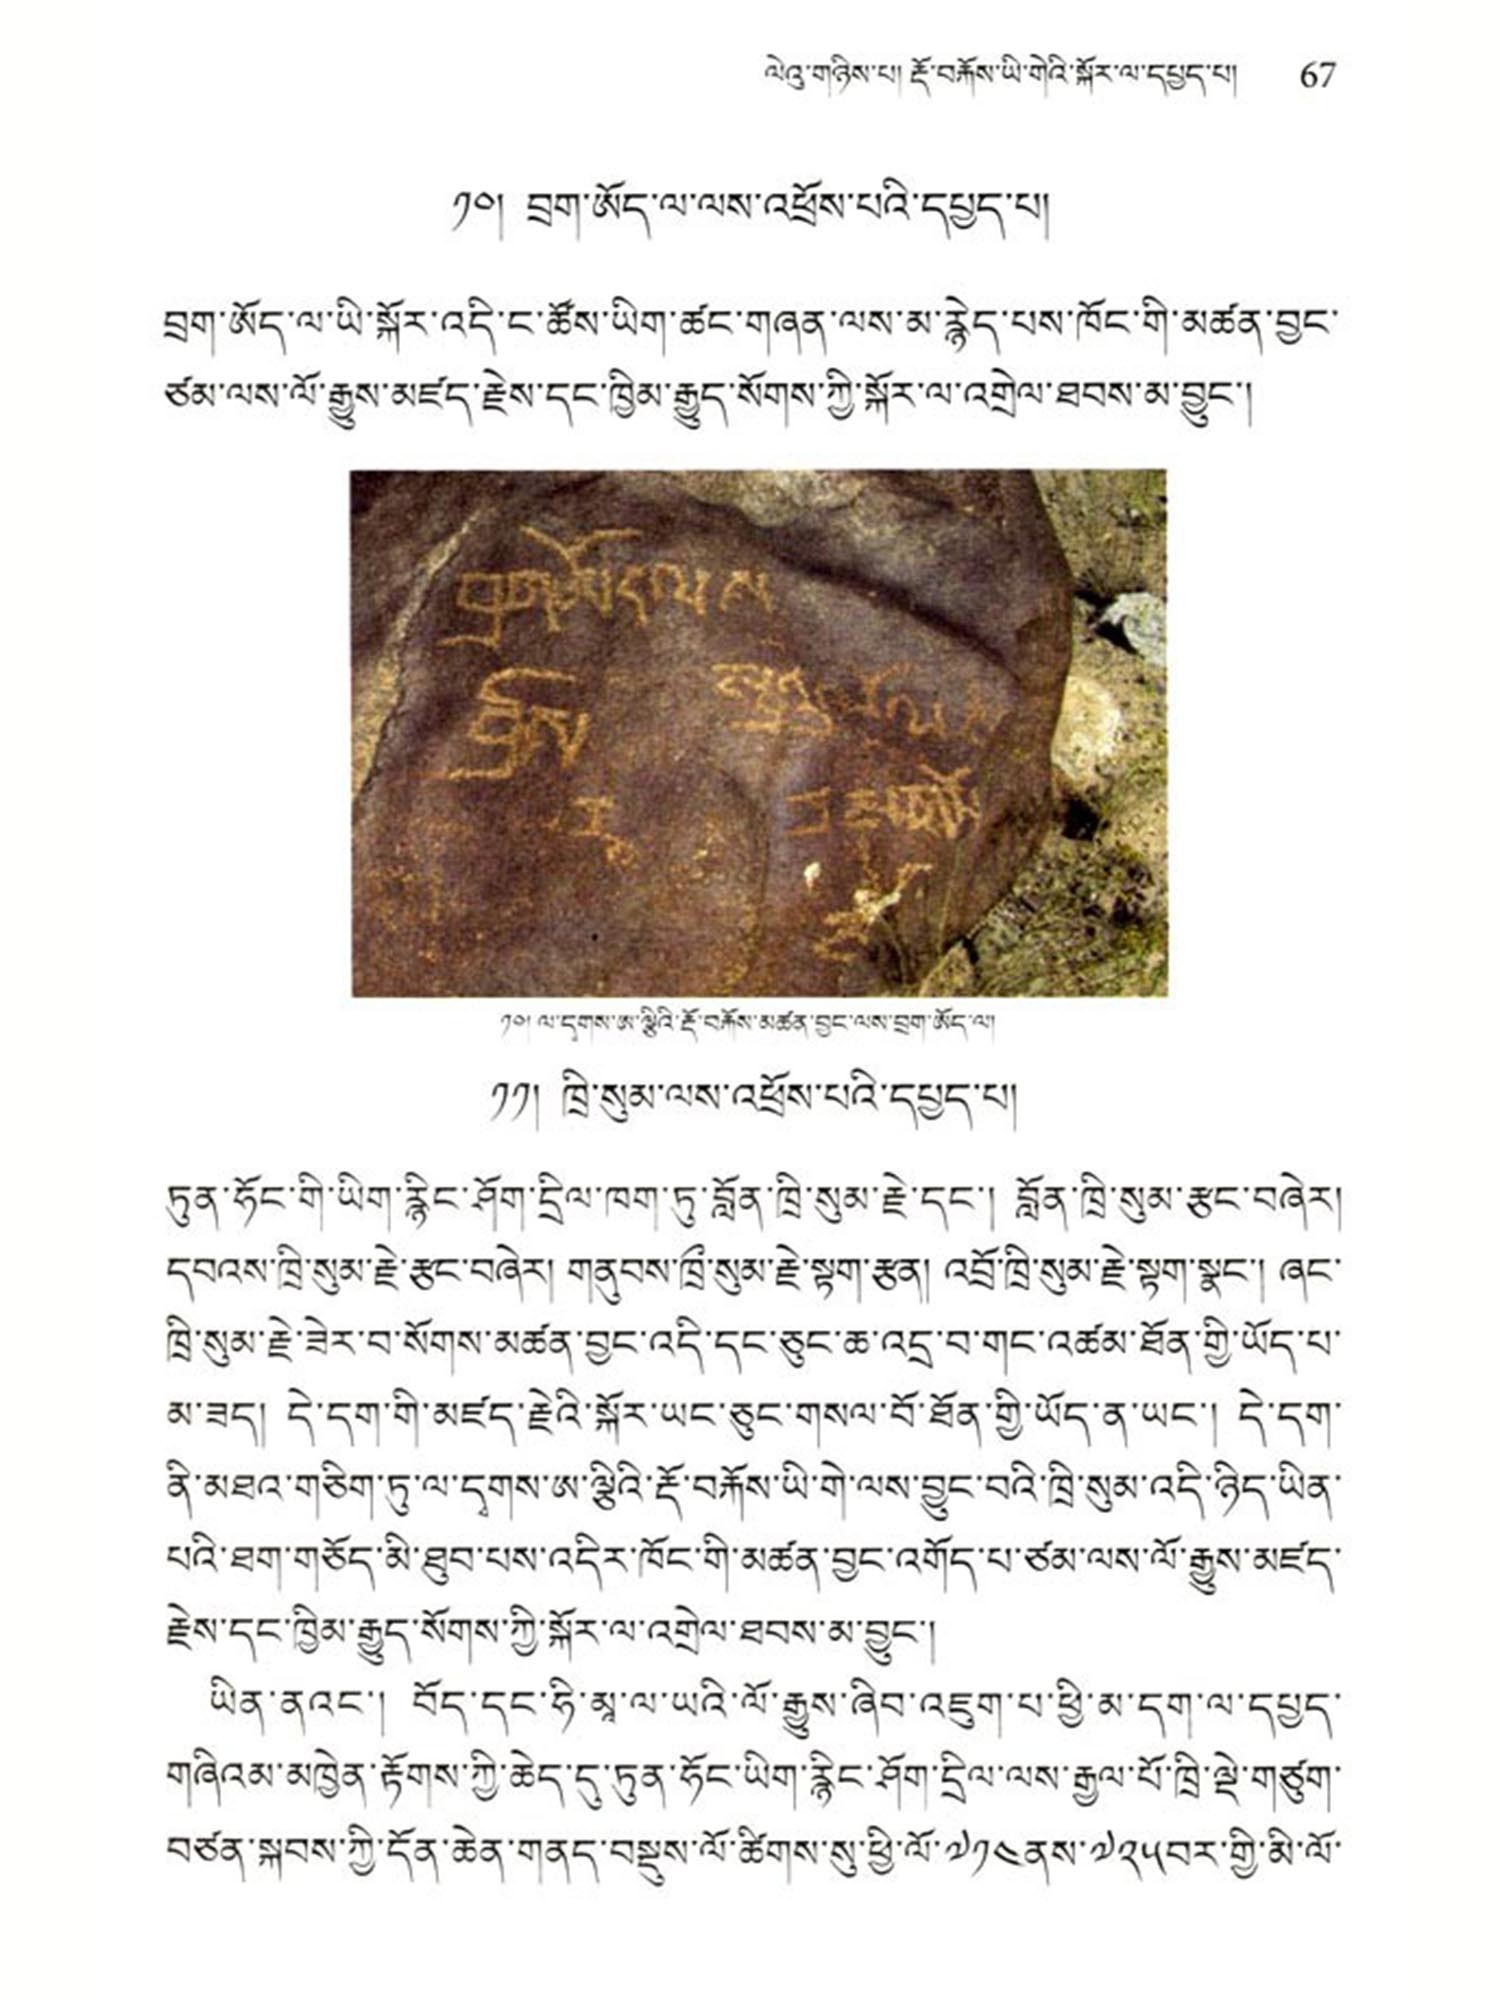 ལེའུ་གཉིས་པ། རྡོ་བརྐོས་ཡི་གེའི་སྐོར་ལ་དཔྱད་པ། 67
༡༠། བྲག་ཨོད་ལ་ལས་འཕྲོས་པའི་དཔྱད་པ།
བྲག་ཨོད་ལ་ཡི་སྐོར་འདི་ང་ཚོས་ཡིག་ཚང་གཞན་ལས་མ་རྙེད་པས་ཁོང་གི་མཚན་བྱང་
ཙམ་ལས་ལོ་རྒྱུས་མཛད་རྗེས་དང་ཁྱིམ་རྒྱུད་སོགས་ཀྱི་སྐོར་ལ་འགྲེལ་ཐབས་མ་བྱུང་།
བྲག་ཨོད་ལས
བྲིས
༡༠། ལ་དྭགས་ཨ་ལྕིའི་རྡོ་བརྐོས་མཚན་བྱང་ལས་བྲག་ཨོད་ལ།
༡༡། ཁྲི་སུམ་ལས་འཕྲོས་པའི་དཔྱད་པ།
ཏུན་ཧོང་གི་ཡིག་རྙིང་ཤོག་དྲིལ་ཁག་ཏུ་བློན་ཁྲི་སུམ་རྗེ་དང་། བློན་ཁྲི་སུམ་རྩང་བཞེར།
དབའས་ཁྲི་སུམ་རྗེ་རྩང་བཞེར། གནུབས་ཁྲི་སུམ་རྗེ་སྟག་རྩན། འབྲོ་ཁྲི་སུམ་རྗེ་སྟག་སྣང་། ཞང་
ཁྲི་སུམ་རྗེ་ཟེར་བ་སོགས་མཚན་བྱང་འདི་དང་ཅུང་ཆ་འདྲ་བ་གང་འཚམ་ཐོན་གྱི་ཡོད་པ་
མ་ཟད། དེ་དག་གི་མཛད་རྗེའི་སྐོར་ཡང་ཅུང་གསལ་བོ་ཐོན་གྱི་ཡོད་ན་ཡང་། དེ་དག་
ནི་མཐའ་གཅིག་ཏུ་ལ་དྭགས་ཨ་ལྕིའི་རྡོ་བརྐོས་ཡི་གེ་ལས་བྱུང་བའི་ཁྲི་སུམ་འདི་ཉིད་ཡིན་
པའི་ཐག་གཅོད་མི་ཐུབ་པས་འདིར་ཁོང་གི་མཚན་བྱང་འགོད་པ་ཙམ་ལས་ལོ་རྒྱུས་མཛད་
རྗེས་དང་ཁྱིམ་རྒྱུད་སོགས་ཀྱི་སྐོར་ལ་འགྲེལ་ཐབས་མ་བྱུང་།
ཡིན་ནའང་། བོད་དང་ཧི་མཱ་ལ་ཡའི་ལོ་རྒྱུས་ཞིབ་འཇུག་པ་ཕྱི་མ་དག་ལ་དཔྱད་
གཞིའམ་མཁྱེན་རྟོགས་ཀྱི་ཆེད་དུ་ཏུན་ཧོང་ཡིག་རྙིང་ཤོག་དྲིལ་ལས་རྒྱལ་པོ་ཁྲི་ལྡེ་གཙུག་
བཙན་སྐབས་ཀྱི་དོན་ཆེན་གནད་བསྡུས་ལོ་ཚིགས་སུ་ཕྱི་ལོ་༧༡༤ནས་༧༢༥བར་གྱི་མི་ལོ་